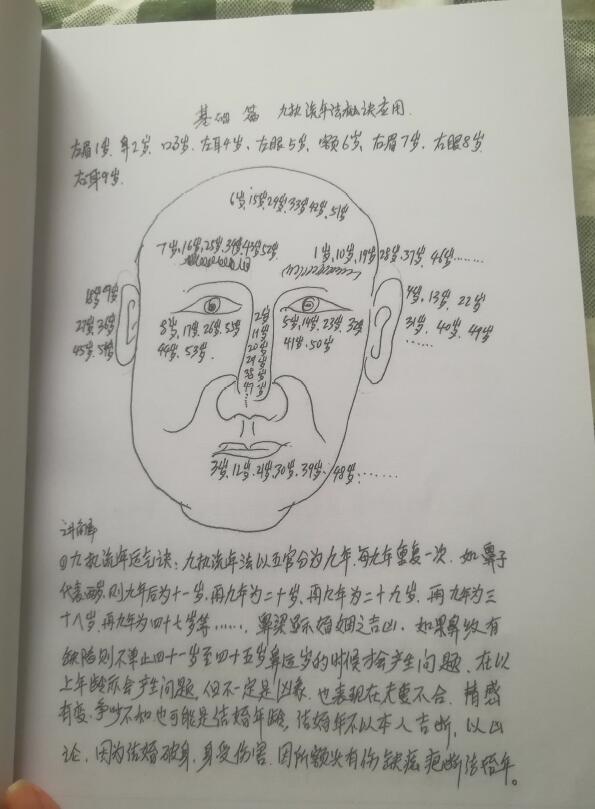 基础篇 九执流年法秘诀应用
左眉1岁、鼻2岁、口3岁、左耳4岁、左眼5岁、额6岁、右眉7岁、右眼8岁
右耳9岁.
6岁.15岁.24岁.33岁.42岁.51岁
7岁.16岁.25岁.34岁.43岁52岁
1岁,10岁,19岁28岁.37岁.46岁……
18岁9岁
27岁36岁
45岁.54岁
4岁.13岁.22岁
31岁.40岁.49岁
……
8岁,17岁.26岁.35岁
44岁.53岁.
5岁,14岁.23岁.32岁
41岁.50岁
2岁
11岁
20岁
29岁
38岁
47岁
⋮
3岁,12岁.21岁.30岁.39岁.48岁……
讲解
①九执流年运气诀:九执流年法以五官分为九年.每九年重复一次.如鼻子
代表两岁.则九年后为十一岁.再九年为二十岁.再九年为二十九岁.再九年为三
十八岁.再九年为四十七岁等……,鼻梁显示婚姻之吉凶.如果鼻效有
缺陷则不单止四十一岁至四十五岁鼻运岁的时候才会产生问题.在以
上年龄亦会产生问题.但不一定是凶象.也表现在夫妻不合.情感
有变.争吵不和也可能是结婚年龄,结婚年不以本人吉断,以凶
论,因为结婚破身.身受伤害.因所额头有伤缺痣疤断结婚年。